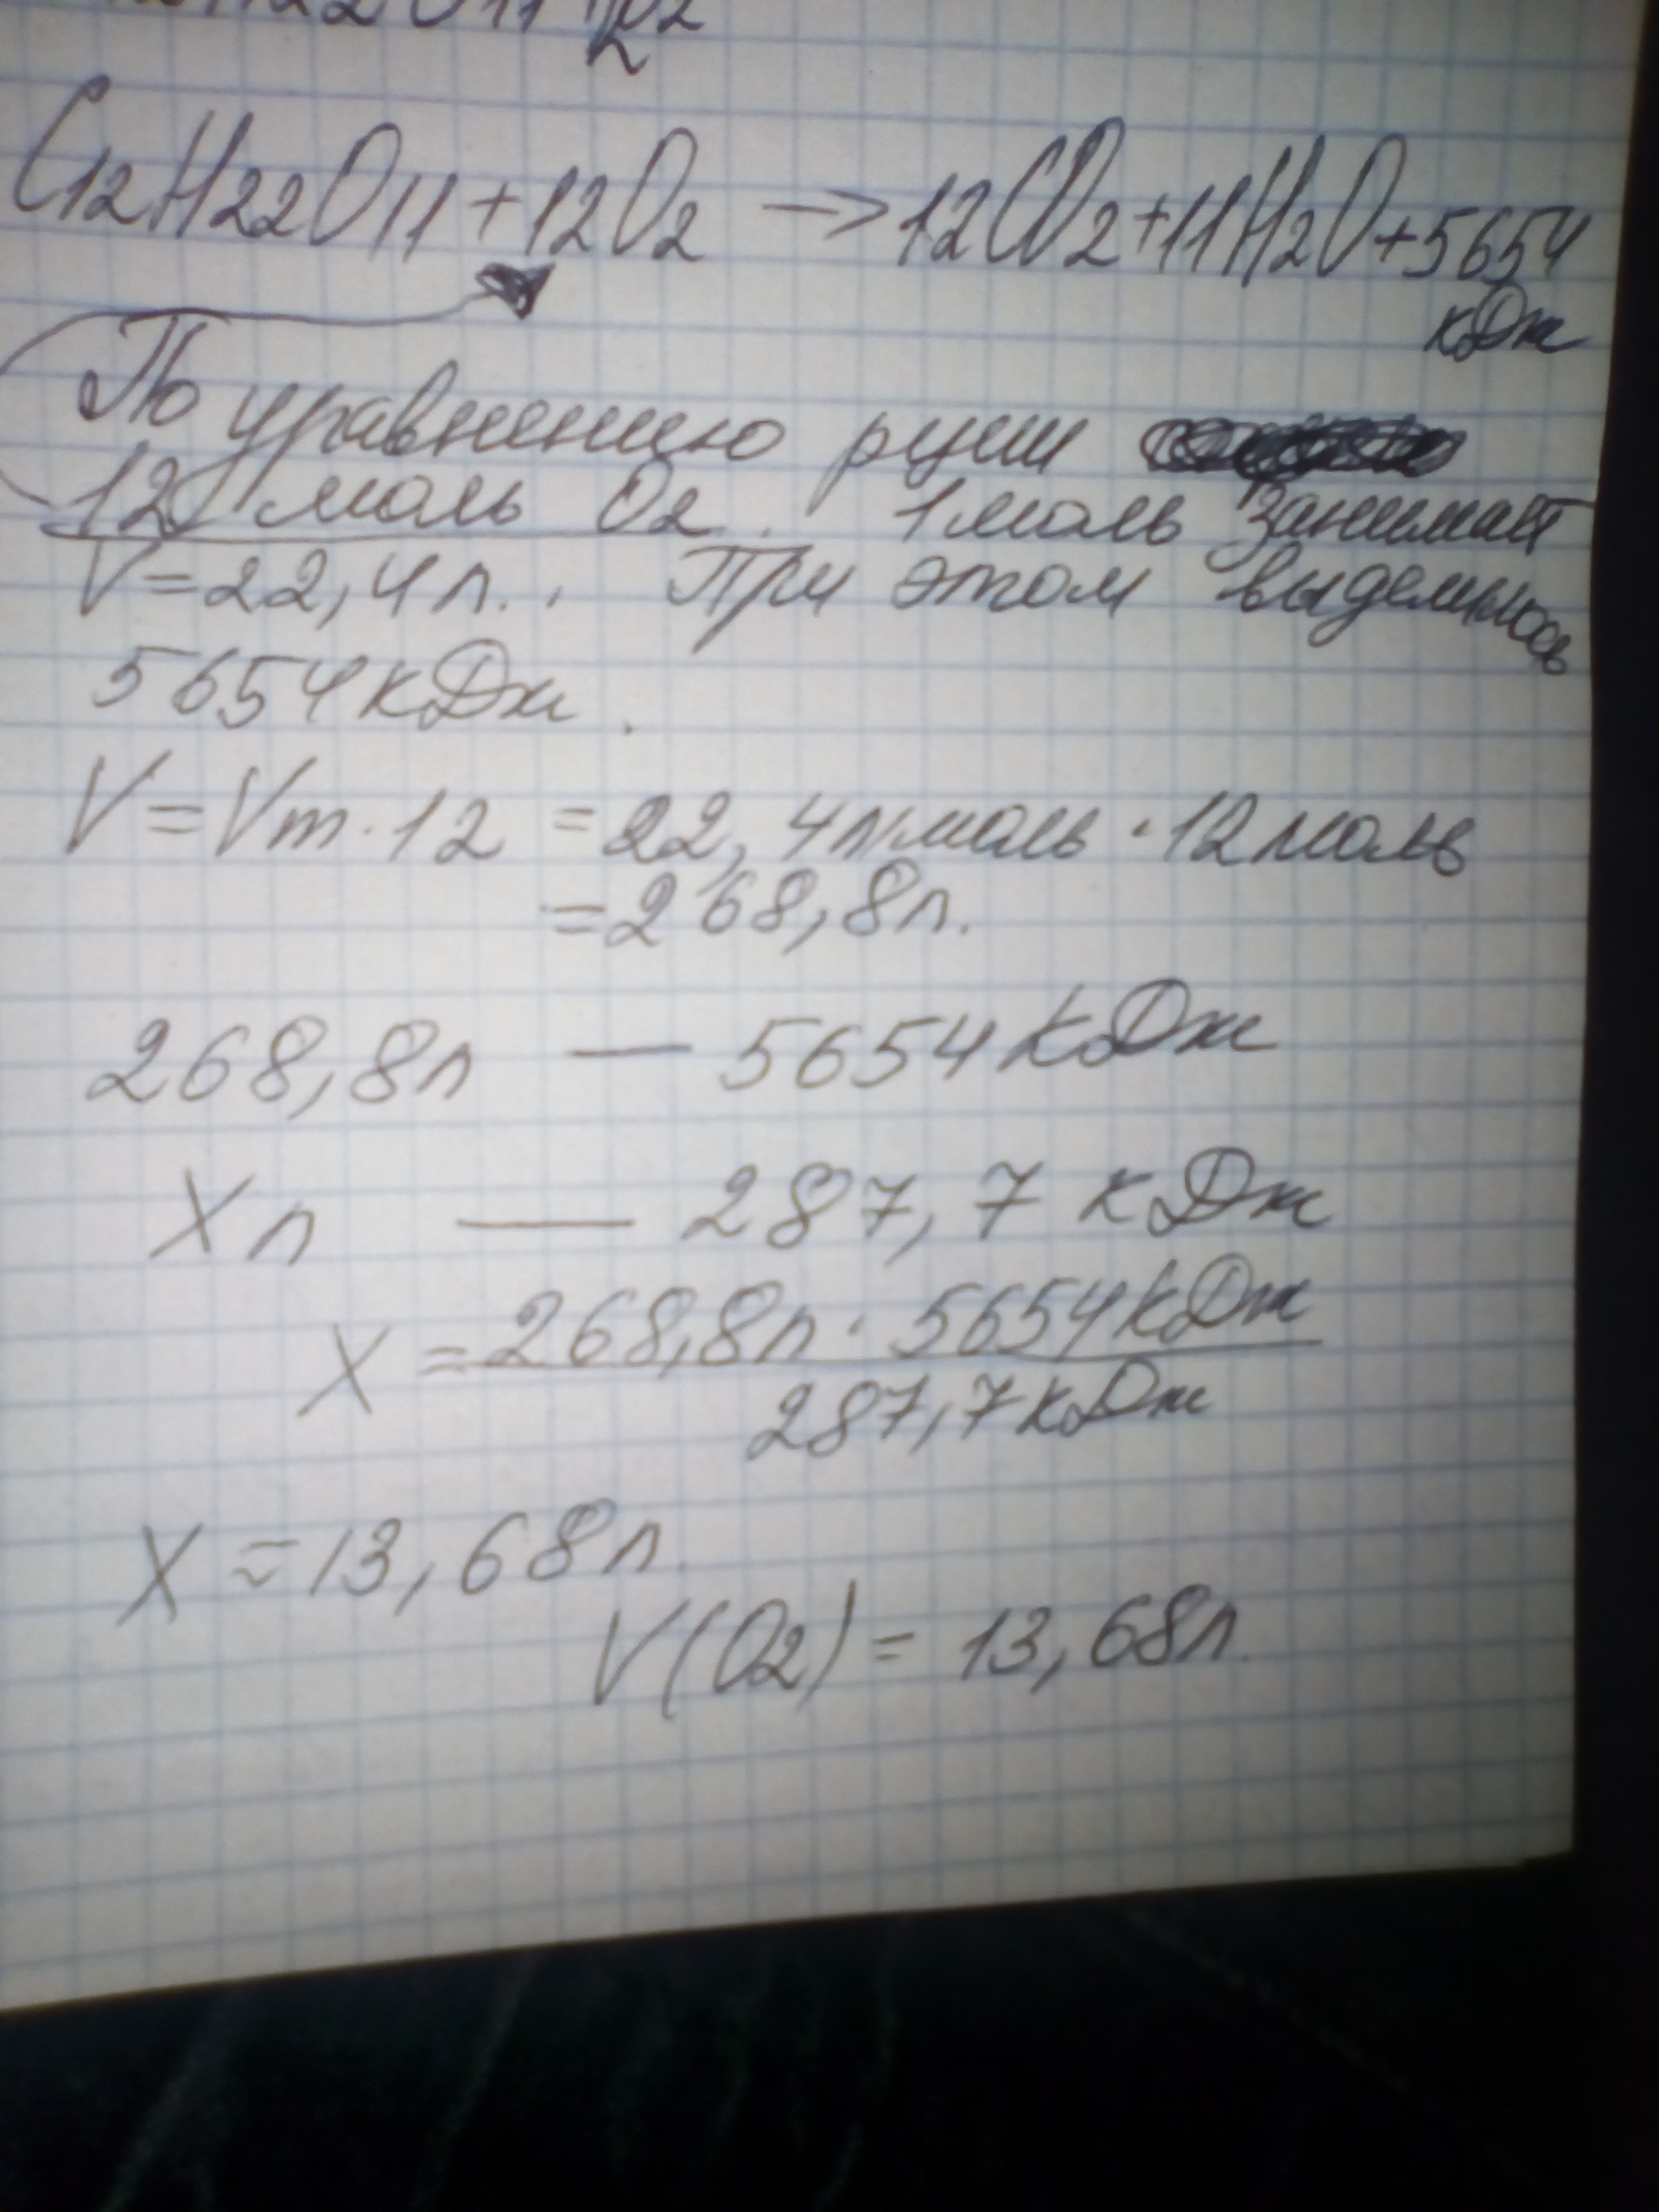 C12H22O11+12O2 → 12CO2+11H2O+5654
кДж
По уравнению р-ции
12 моль O2. 1 моль занимает
V=22,4л.. При этом выделилось
5654кДж.
V=Vm·12 =22,4л/моль·12моль
=268,8л.
268,8л — 5654кДж
Xл — 287,7 кДж
X = 268,8л · 5654кДж
287,7кДж
X ≈ 13,68л.
V(O2) = 13,68л.